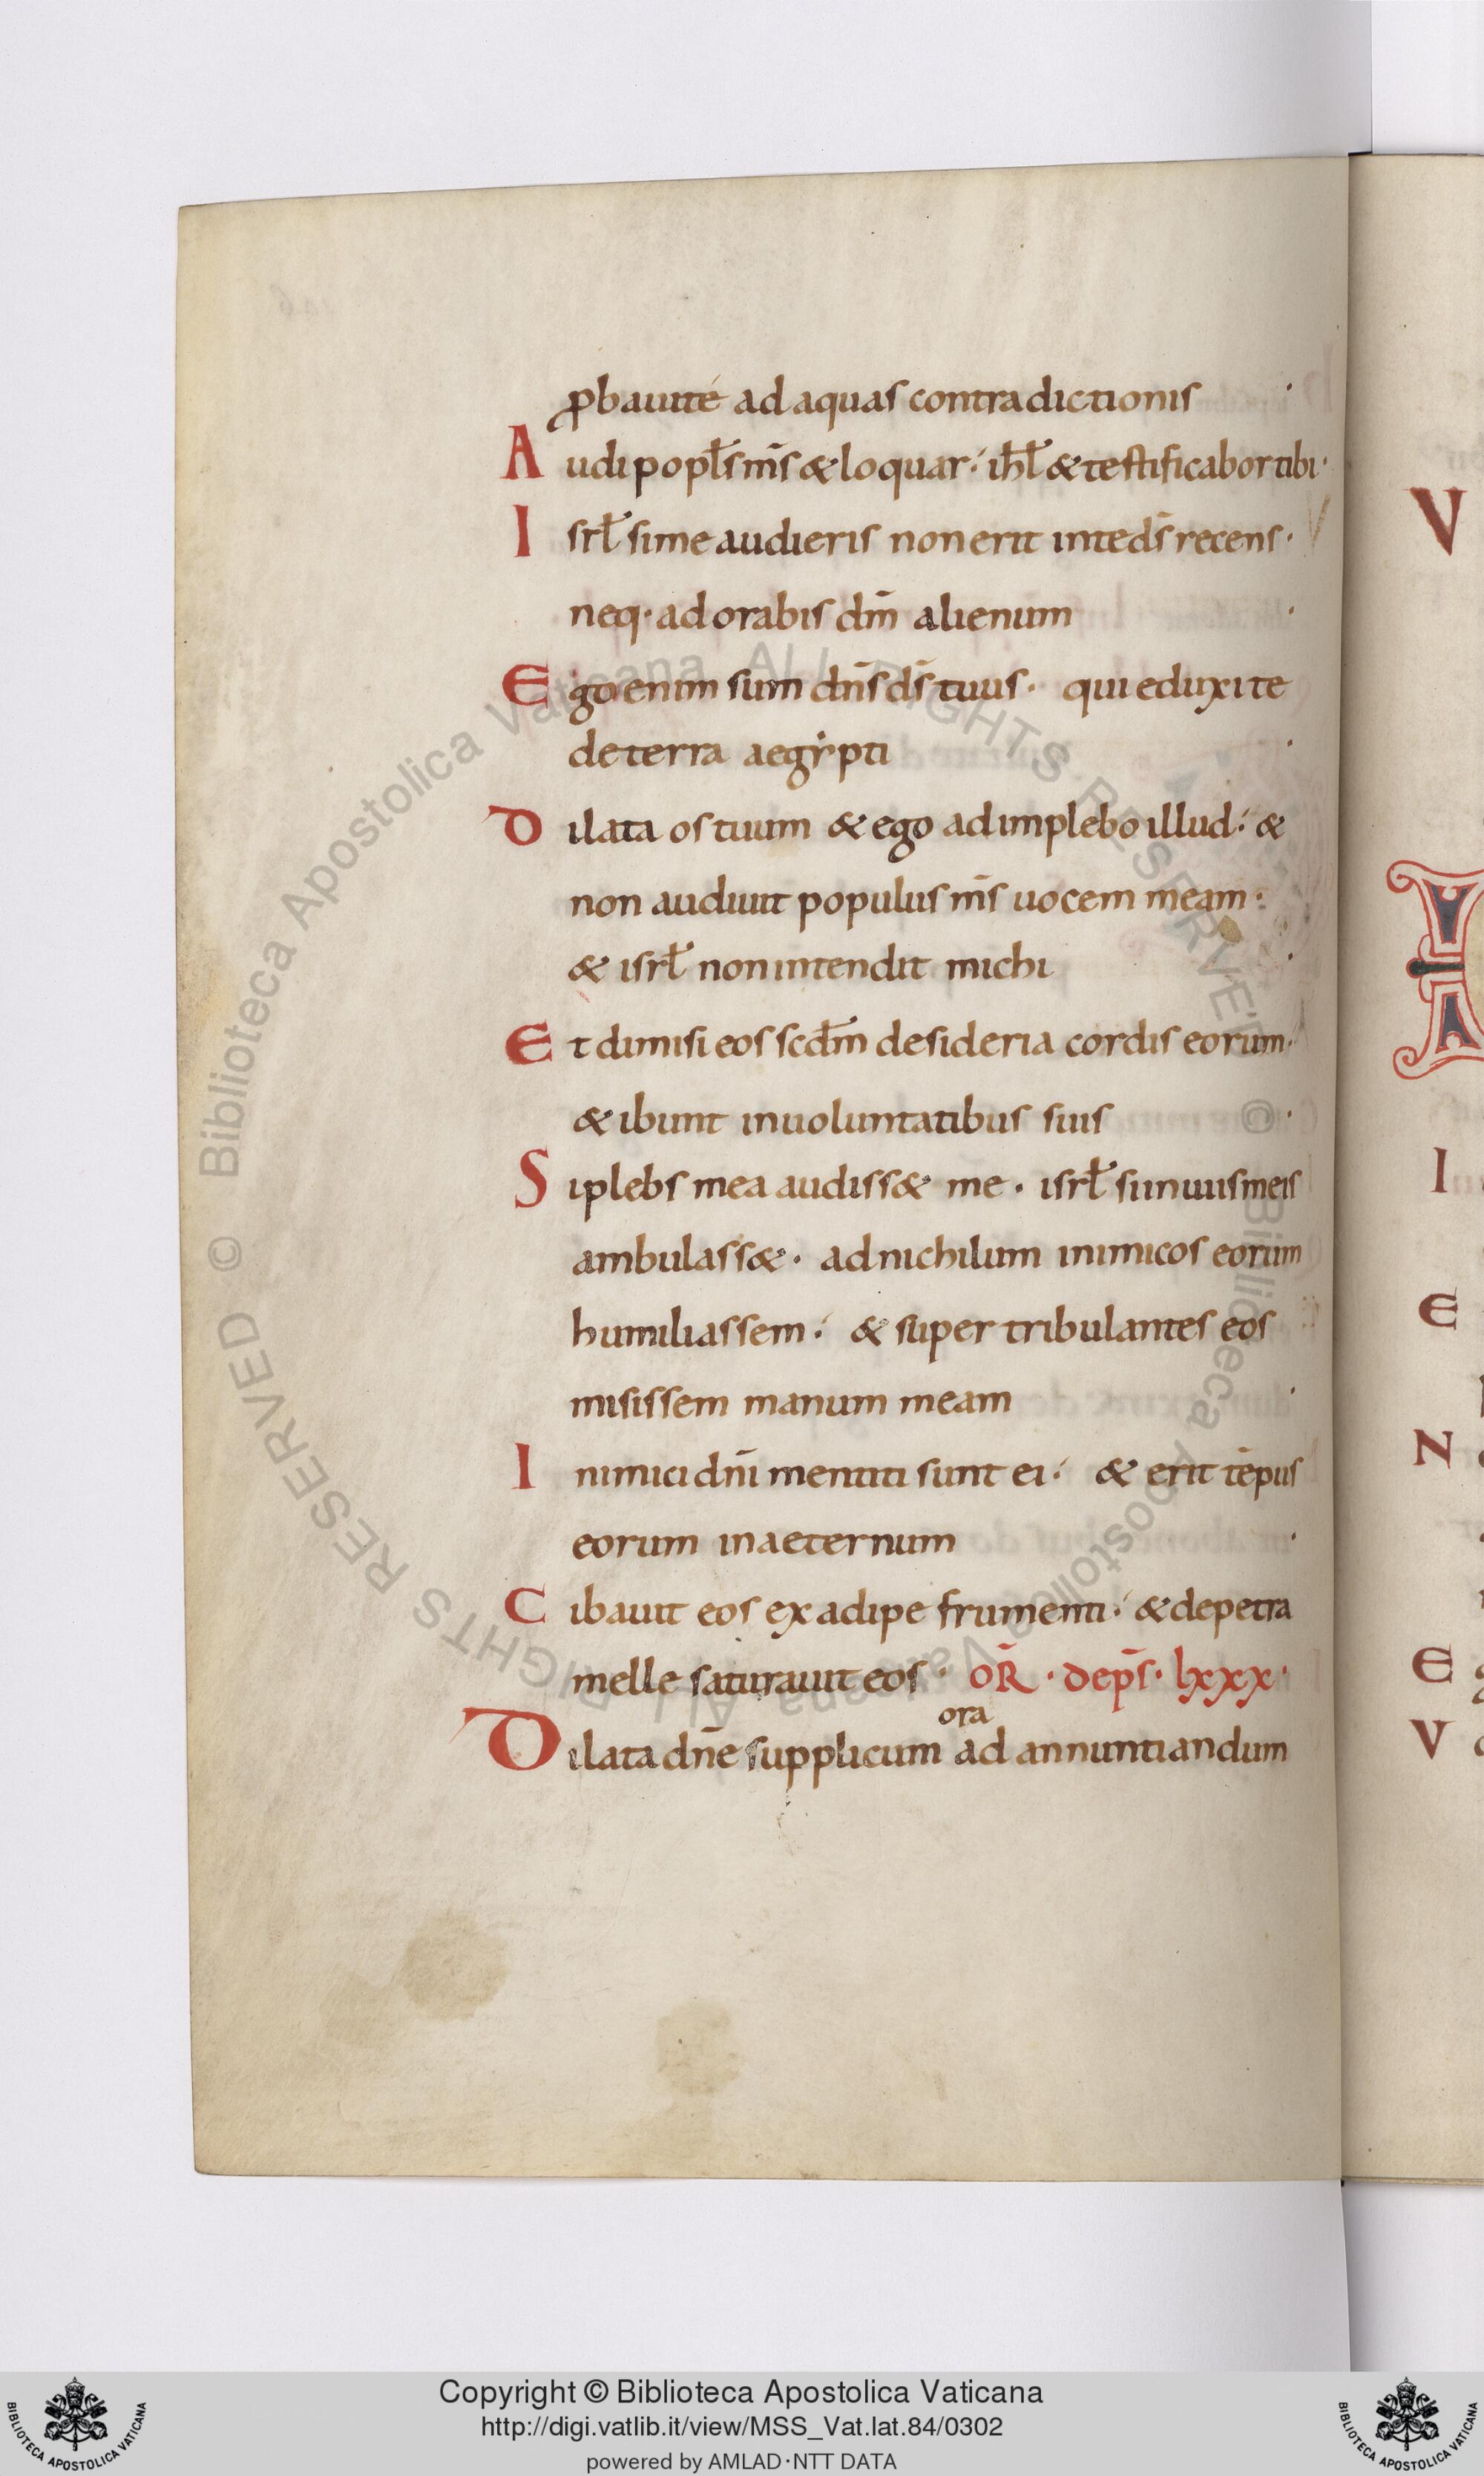 ꝓbauit té ad aquas contradictionis ·
Audi popl̄s m̄s & loquar ·́ ihl̄ & testificabor tibi ·
Isrl̄ si me audieris non erit in te ds̄ recens ·
neq· adorabis dm̄ alienum ·
Ego enim sum dn̄s ds̄ tuus · qui eduxi te
de terra aegẏpti ·
Dilata os tuum & ego adimplebo illud ·́ &
non audiuit populus m̄s uocem meam ·
& isrl̄ non intendit michi ·
Et dimisi eos scd̄m desideria cordis eorum ·
& ibunt in uoluntatibus suis ·
Si plebs mea audiss& me · isrl̄ si in uiis meis
ambulass& · ad nichilum inimicos eorum
humiliassem ·́ & super tribulantes eos
misissem manum meam ·
Inimici dn̄i mentiti sunt ei ·́ & erit tēpus
eorum in aeternum ·
Cibauit eos ex adipe frumenti ·́ & de petra
melle saturauit eos · OR̄ · de ps̄ · lxxx ·
ora
Dilata dn̄e supplicum ad annuntiandum
V
I
E
N
E
V
© Biblioteca Apostolica Vaticana ALL RIGHTS RESERVED
© Biblioteca Apostolica Vaticana ALL RIGHTS RESERVED
Copyright © Biblioteca Apostolica Vaticana
http://digi.vatlib.it/view/MSS_Vat.lat.84/0302
powered by AMLAD·NTT DATA
BIBLIOTECA APOSTOLICA VATICANA
BIBLIOTECA APOSTOLICA VATICANA